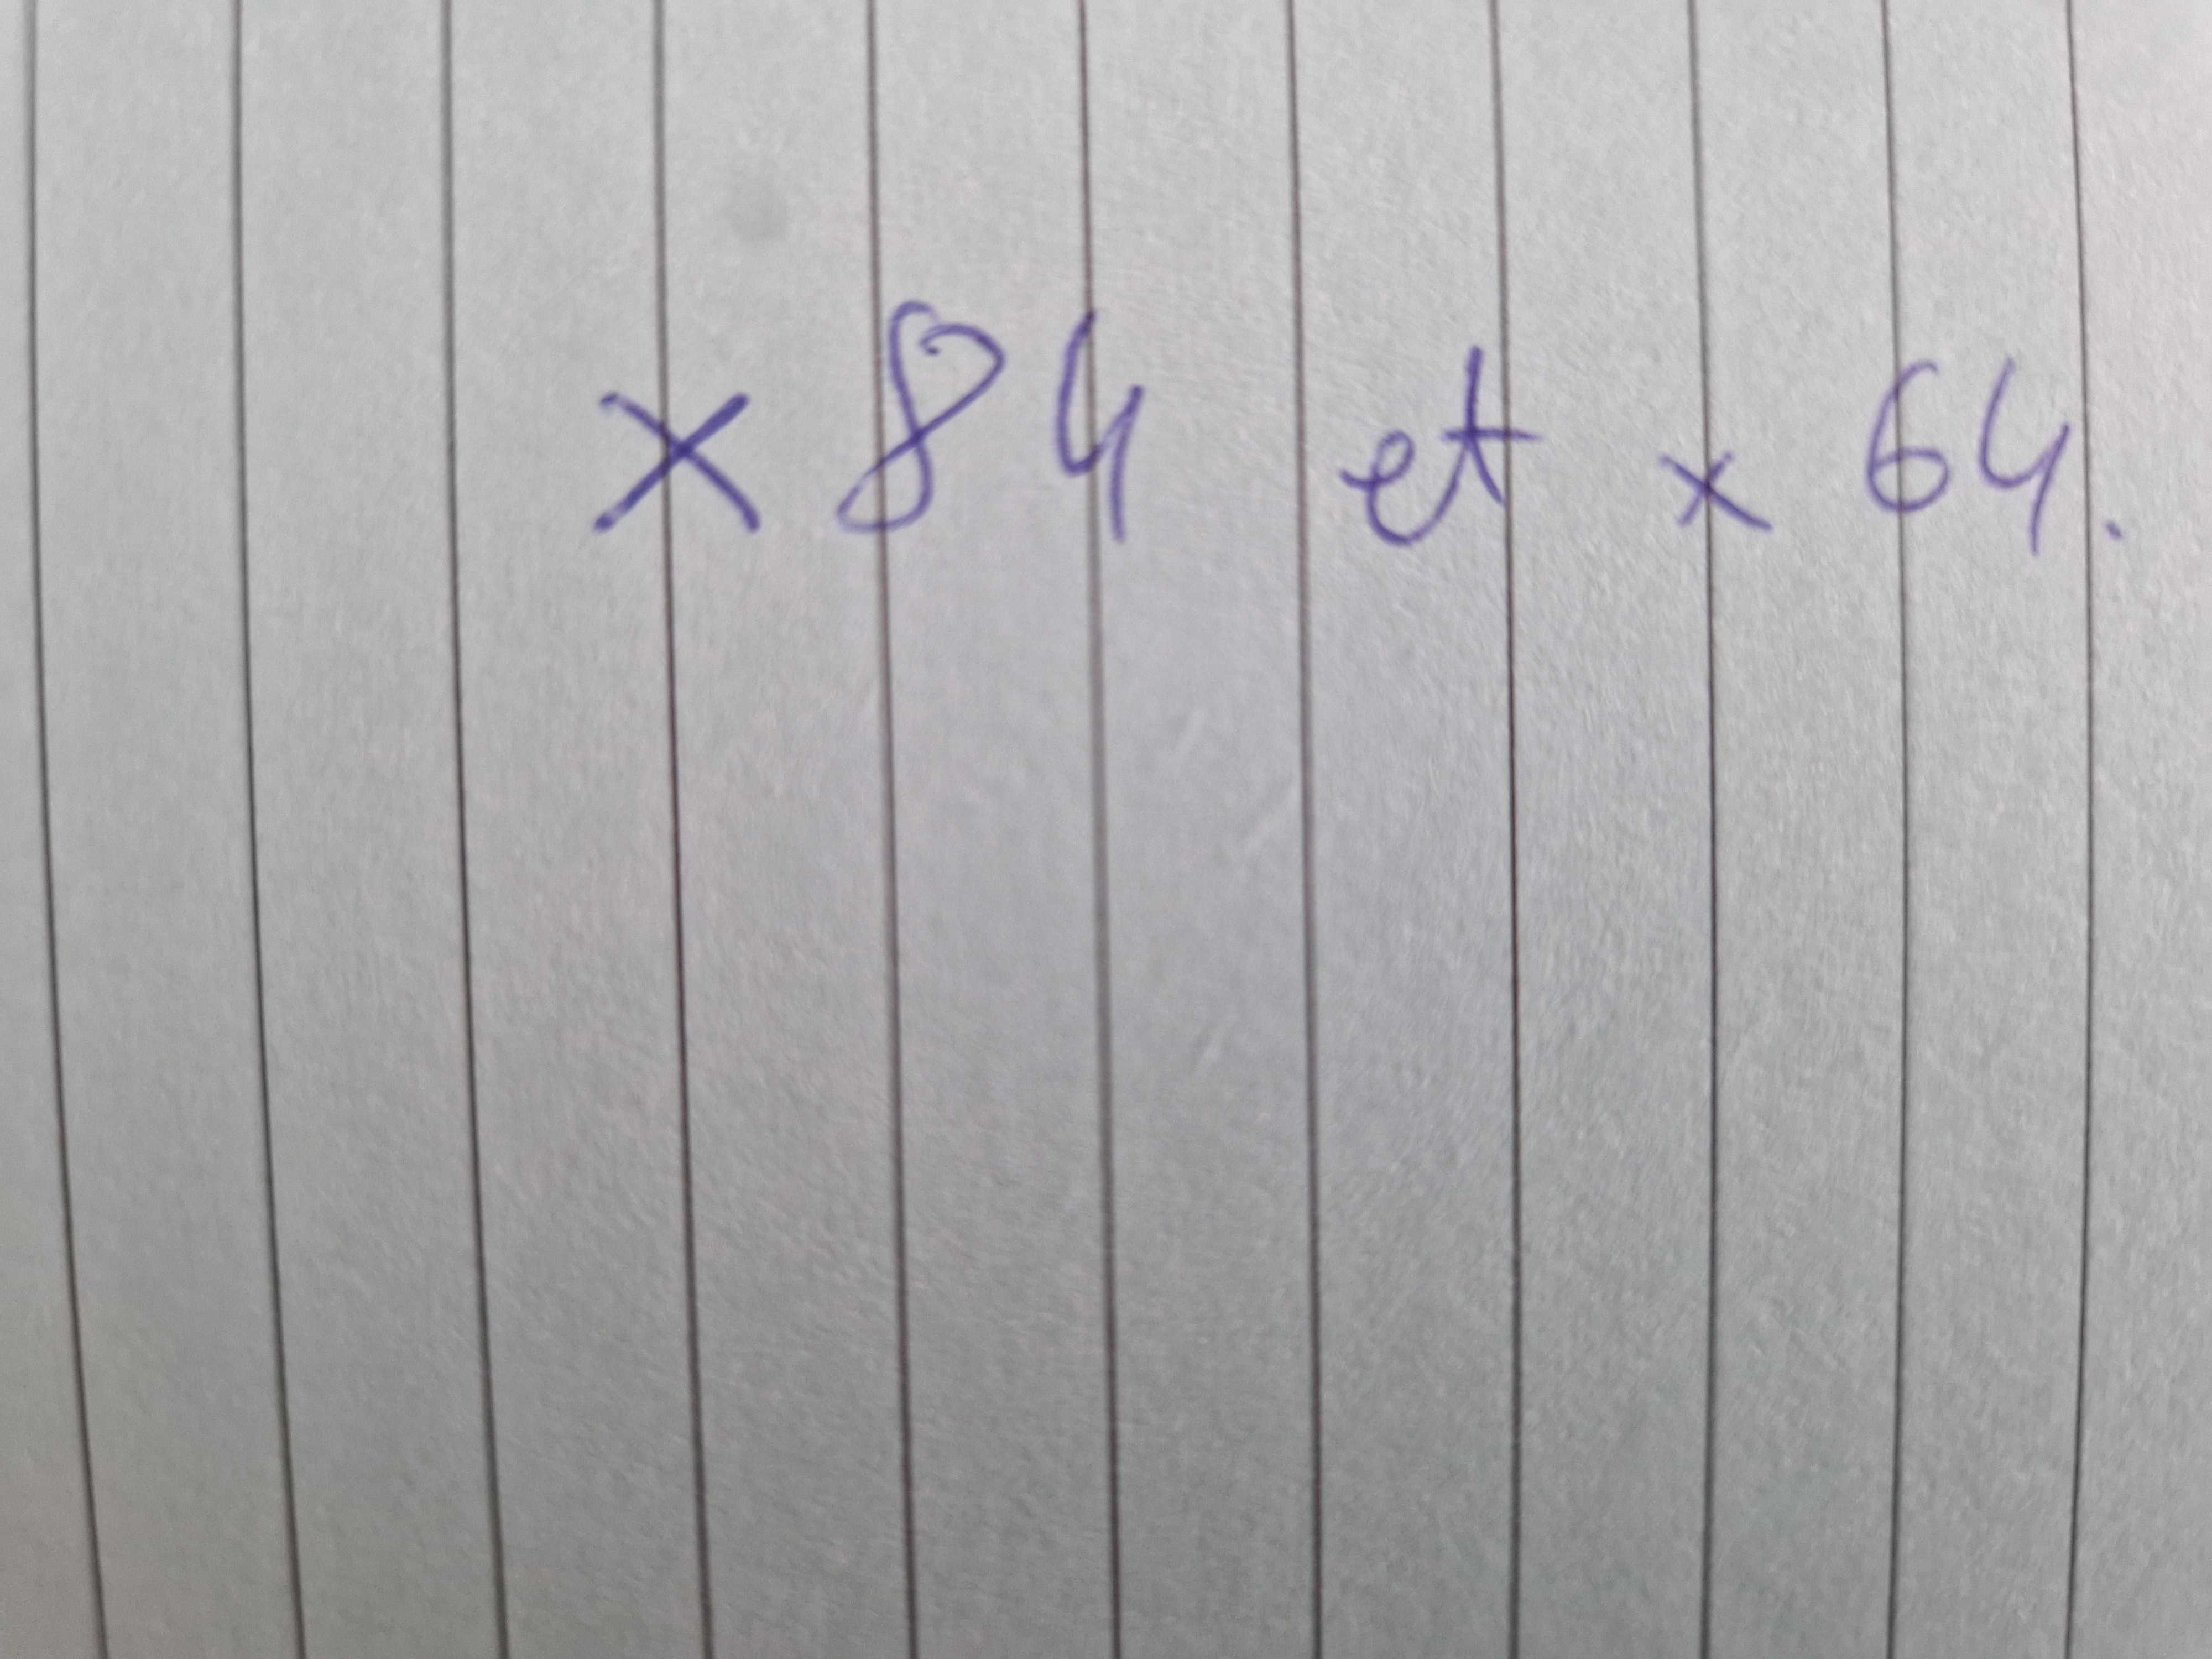 × 84 et × 64.